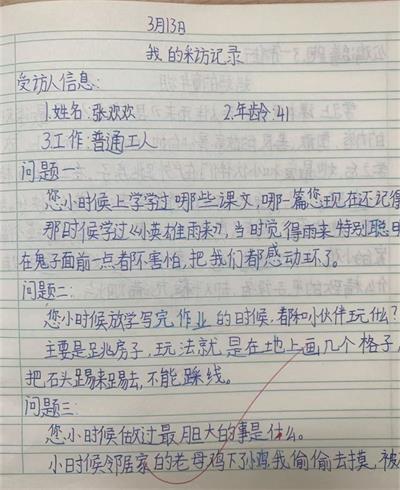 3月13日
我的采访记录
受访人信息:
1.姓名:张欢欢 2.年龄:41
3.工作:普通工人
问题一:
您小时候上学学过哪些课文,哪一篇您现在还记得
那时候学过《小英雄雨来》,当时觉得雨来特别聪明
在鬼子面前一点都不害怕,把我们都感动坏了。
问题二:
您小时候放学写完作业的时候,都和小伙伴玩什么?
主要是跳房子,玩法就是在地上画几个格子,
把石头踢来踢去,不能踩线。
问题三:
您小时候做过最胆大的事是什么。
小时候邻居家的老母鸡下了小鸡,我偷偷去摸,被